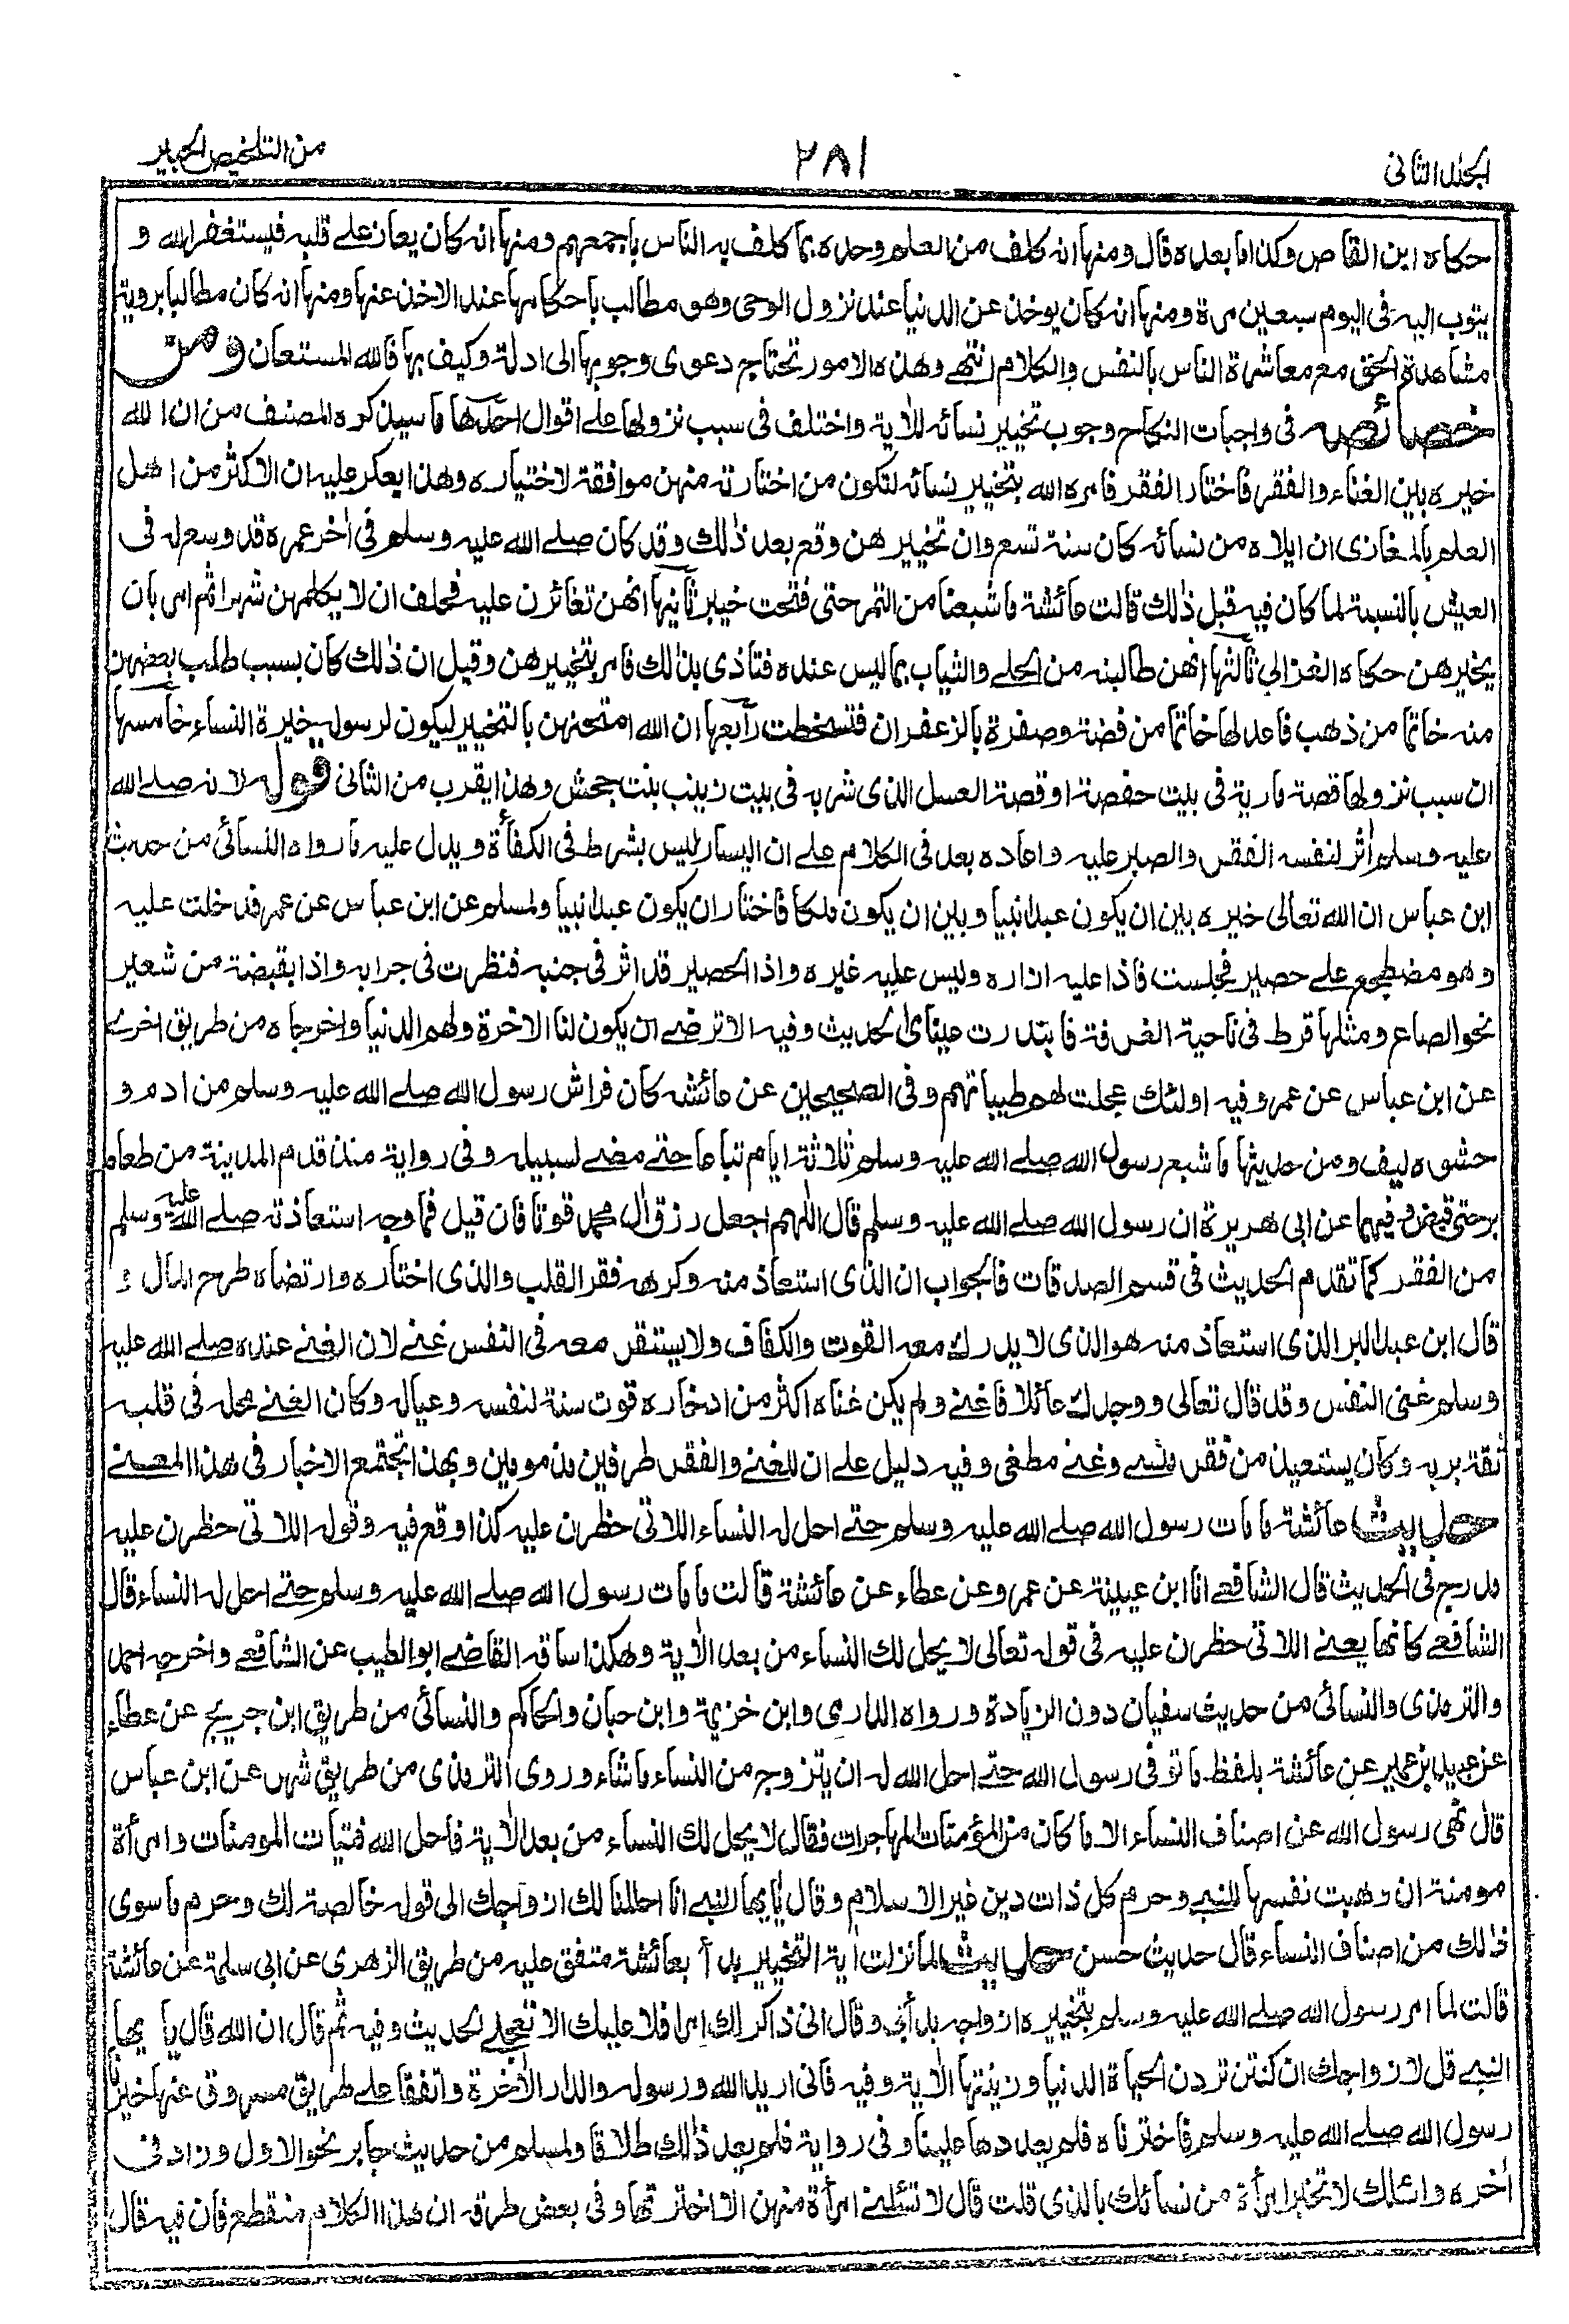 الجلد الثانى
٢٨١
من التلخيص الحبير
حكاه ابن القاص وكذا ما بعده قال ومنها انه كلف من العلم وحده بما كلف به الناس باجمعهم ومنها انه كان يعان على قلبه فيستغفر الله و
يتوب اليه فى اليوم سبعين مرة ومنها انه كان يوخذ عن الدنيا عند نزول الوحى وهو مطالب باحكامها عند الاخذ عنها ومنها انه كان مطالبا بروية
مشاهدة الحق مع معاشرة الناس بالنفس والكلام انتهے وهذه الامور تحتاج دعوى وجوبها الى ادلة وكيف بها فالله المستعان ومن
خصائصه فى واجبات النكاح وجوب تخيير نسائه للآية واختلف فى سبب نزولها علے اقوال احدها ما سيذكره المصنف من ان الله
خيره بين الغناء والفقر فاختار الفقر فامره الله بتخيير نسائه لتكون من اختارته منهن موافقة لاختياره وهذا يعكر عليه ان الاكثر من اهل
العلم بالمغازى ان ايلاه من نسائه كان سنة تسع وان تخييرهن وقع بعد ذلك وقد كان صلے الله عليه وسلم فى اٰخر عمره قد وسع له فى
العيش بالنسبة لما كان فيه قبل ذلك قالت عائشة ما شبعنا من التمر حتى فتحت خيبر ثانيها انهن تغائرن عليه فحلف ان لا يكلمهن شهرا ثم امر بان
يخيرهن حكاه الغزالي ثالثها انهن طالبنه من الحلے والثياب بما ليس عنده فتاذى بذلك فامر بتخييرهن وقيل ان ذلك كان بسبب طلب بعضهن
منه خاتما من ذهب فاعد لها خاتما من فضة وصفرة بالزعفران فتسخطت رابعها ان الله امتحنهن بالتخيير ليكون لرسوله خيرة النساء خامسها
ان سبب نزولها قصة مارية فى بيت حفصة او قصة العسل الذى شربه فى بيت زينب بنت جحش وهذا يقرب من الثانى قوله لانه صلے الله
عليه وسلم اٰثر لنفسه الفقر والصبر عليه واعاده بعد فى الكلام علے ان اليسار ليس بشرط فى الكفأة ويدل عليه ما رواه النسائى من حديث
ابن عباس ان الله تعالى خيره بين ان يكون عبدا نبيا وبين ان يكون ملكا فاختار ان يكون عبدا نبيا ولمسلم عن ابن عباس عن عمر فدخلت عليه
وهو مضطجع علے حصير فجلست فاذا عليه ازاره وليس عليه غيره واذا الحصير قد اثر فى جنبه فنظرت فى جرابه واذا بقبضة من شعير
نحو الصاع ومثلها قرط فى ناحية الغرفة فابتدرت عيناى الحديث وفيه الا ترضے ان يكون لنا الاخرة ولهم الدنيا واخرجاه من طريق اخرے
عن ابن عباس عن عمر وفيه اولئك عجلت لهم طيباتهم وفى الصحيحين عن عائشه كان فراش رسول الله صلے الله عليه وسلم من ادم و
حشوه ليف ومن حديثها ما شبع رسول الله صلے الله عليه وسلم ثلاثة ايام تباعا حتے مضے لسبيله وفى رواية منذ قدم المدينة من طعام
بر حتى قبض وفيهما عن ابى هريرة ان رسول الله صلے الله عليه وسلم قال اللهم اجعل رزق اٰل محمد قوتا فان قيل فما وجه استعاذته صلے الله عليه وسلم
من الفقر كما تقدم الحديث فى قسم الصدقات فالجواب ان الذى استعاذ منه وكرهه فقر القلب والذى اختاره وارتضاه طرح المال و
قال ابن عبد البر الذى استعاذ منه هو الذى لا يدرك معه القوت والكفاف ولا يستقر معه فى النفس غنے لان الغنے عنده صلے الله عليه
وسلم غنى النفس وقد قال تعالى ووجدك عائلا فاغنے ولم يكن غناه اكثر من ادخاره قوت سنة لنفسه وعياله وكان الغنے محله فى قلبه
ثقة بربه وكان يستعيذ من فقر منسے وغنے مطغى وفيه دليل علے ان للغنے والفقر طرفين مذمومين وبهذا تجتمع الاخبار فى هذا المعنے
حديث عائشة ما مات رسول الله صلے الله عليه وسلم حتے احل له النساء اللاتى حظرن عليه كذا وقع فيه وقوله اللاتى حظرن عليه
مدرج فى الحديث قال الشافعے انا ابن عيينة عن عمرو عن عطاء عن عائشة قالت ما مات رسول الله صلے الله عليه وسلم حتے احل له النساء قال
الشافعے كانها يعنے اللاتى حظرن عليه فى قوله تعالى لا يحل لك النساء من بعد الاٰية وهكذا ساقه القاضے ابو الطيب عن الشافعے واخرجه احمد
والترمذى والنسائى من حديث سفيان دون الزيادة ورواه الدارمى وابن خزيمة وابن حبان والحاكم والنسائى من طريق ابن جريج عن عطاء
عن عبيد بن عمير عن عائشة بلفظ ما توفى رسول الله حتے احل الله له ان يتزوج من النساء ما شاء وروى الترمذى من طريق شهر عن ابن عباس
قال نهى رسول الله عن اصناف النساء الا ما كان من المؤمنات المهاجرات فقال لا يحل لك النساء من بعد الاٰية فاحل الله فتيات المومنات وامرأة
مومنة ان وهبت نفسها للنبے وحرم كل ذات دين غير الاسلام وقال يٰايها النبے انا احللنا لك ازواجك الى قوله خالصة لك وحرم ما سوى
ذلك من اصناف النساء قال حديث حسن حديث لما نزلت اٰية التخيير بدأ بعائشة متفق عليه من طريق الزهرى عن ابى سلمة عن عائشة
قالت لما امر رسول الله صلے الله عليه وسلم بتخييره ازواجه بدأ بى وقال انى ذاكر لك امرا فلا عليك الا تعجلے الحديث وفيه ثم قال ان الله قال يا يها
النبے قل لازواجك ان كنتن تردن الحياة الدنيا وزينتها الاٰية وفيه فانى اريد الله ورسوله والدار الاٰخرة واتفقا علے طريق مسروق عنها خيرنا
رسول الله صلے الله عليه وسلم فاخترناه فلم يعددها علينا وفى رواية فلم يعد ذلك طلاقا ولمسلم من حديث جابر نحو الاول وزاد فى
اٰخره واسئلك لا تخبر امرأة من نسائك بالذى قلت قال لا تسئلنے امرأة منهن الا اخبرتها وفى بعض طرقه ان هذا الكلام منقطع فان فيه قال